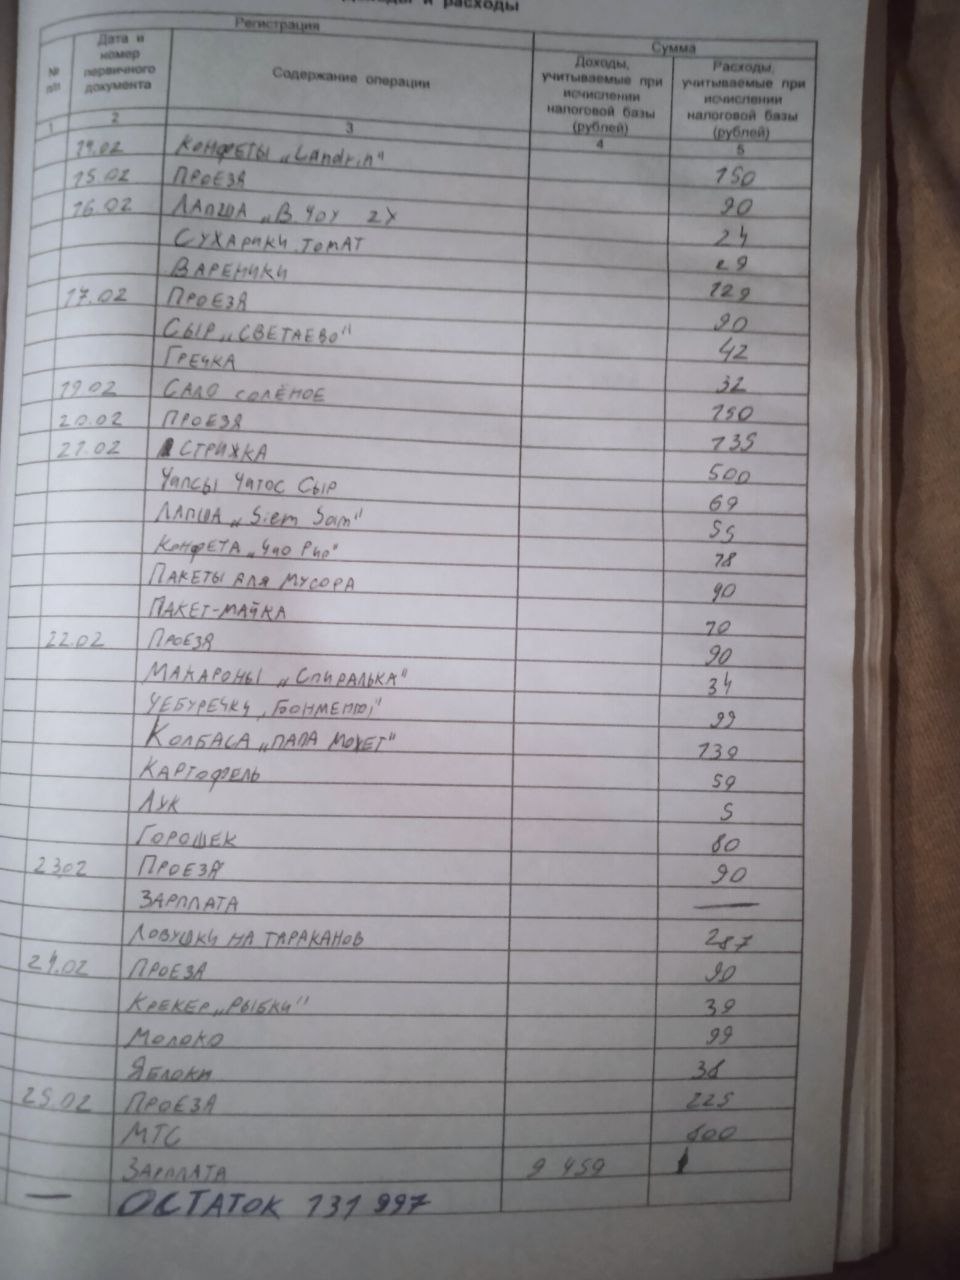 доходы и расходы
Регистрация Сумма
№ п/п Дата и номер первичного документа Содержание операции Доходы, учитываемые при исчислении налоговой базы (рублей) Расходы, учитываемые при исчислении налоговой базы (рублей)
1 2 3 4 5
14.02 Конфеты „Landrin" 150
15.02 Проезд 90
16.02 Лапша „В 24
Сухарики томат 29
Вареники 129
17.02 Проезд 90
Сыр „Светаево" 42
Гречка 32
19.02 Сало солёное 150
20.02 Проезд 135
21.02 Стрижка 500
Чипсы Читос Сыр 69
Лапша „Siem Sam" 55
Конфета „Чио Рио" 18
Пакеты для мусора 90
Пакет-майка 10
22.02 Проезд 90
Макароны „Спиралька" 34
Чебуречки „Бонменю" 99
Колбаса „Папа может" 139
Картофель 59
Лук 5
Горошек 80
23.02 Проезд 90
Зарплата —
Ловушки на тараканов 287
24.02 Проезд 90
Крекер „Рыбки" 39
Молоко 99
Яблоки 38
25.02 Проезд 225
МТС 800
Зарплата 9 459
— Остаток 131 997